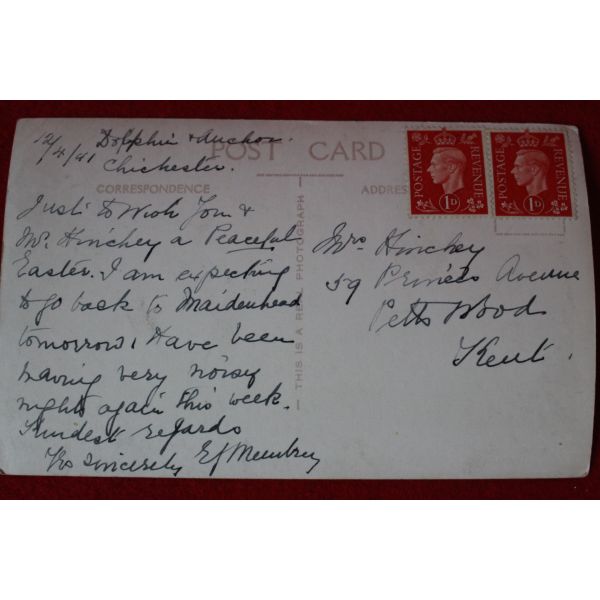 12/4/41 Dolphin & Anchor.
Chichester.
POST CARD
CORRESPONDENCE
ADDRESS
Just to Wish You &
Mr. Hinchey a Peaceful
Easter. I am expecting
to go back to Maidenhead
tomorrow, Have been
having very noisy
nights again this week.
Kindest regards
Yrs sincerely EJ
THIS IS A REAL PHOTOGRAPH
POSTAGE REVENUE
1D
POSTAGE REVENUE
1D
Mrs Hinchey
59 Princes Avenue
Petts Wood
Kent.